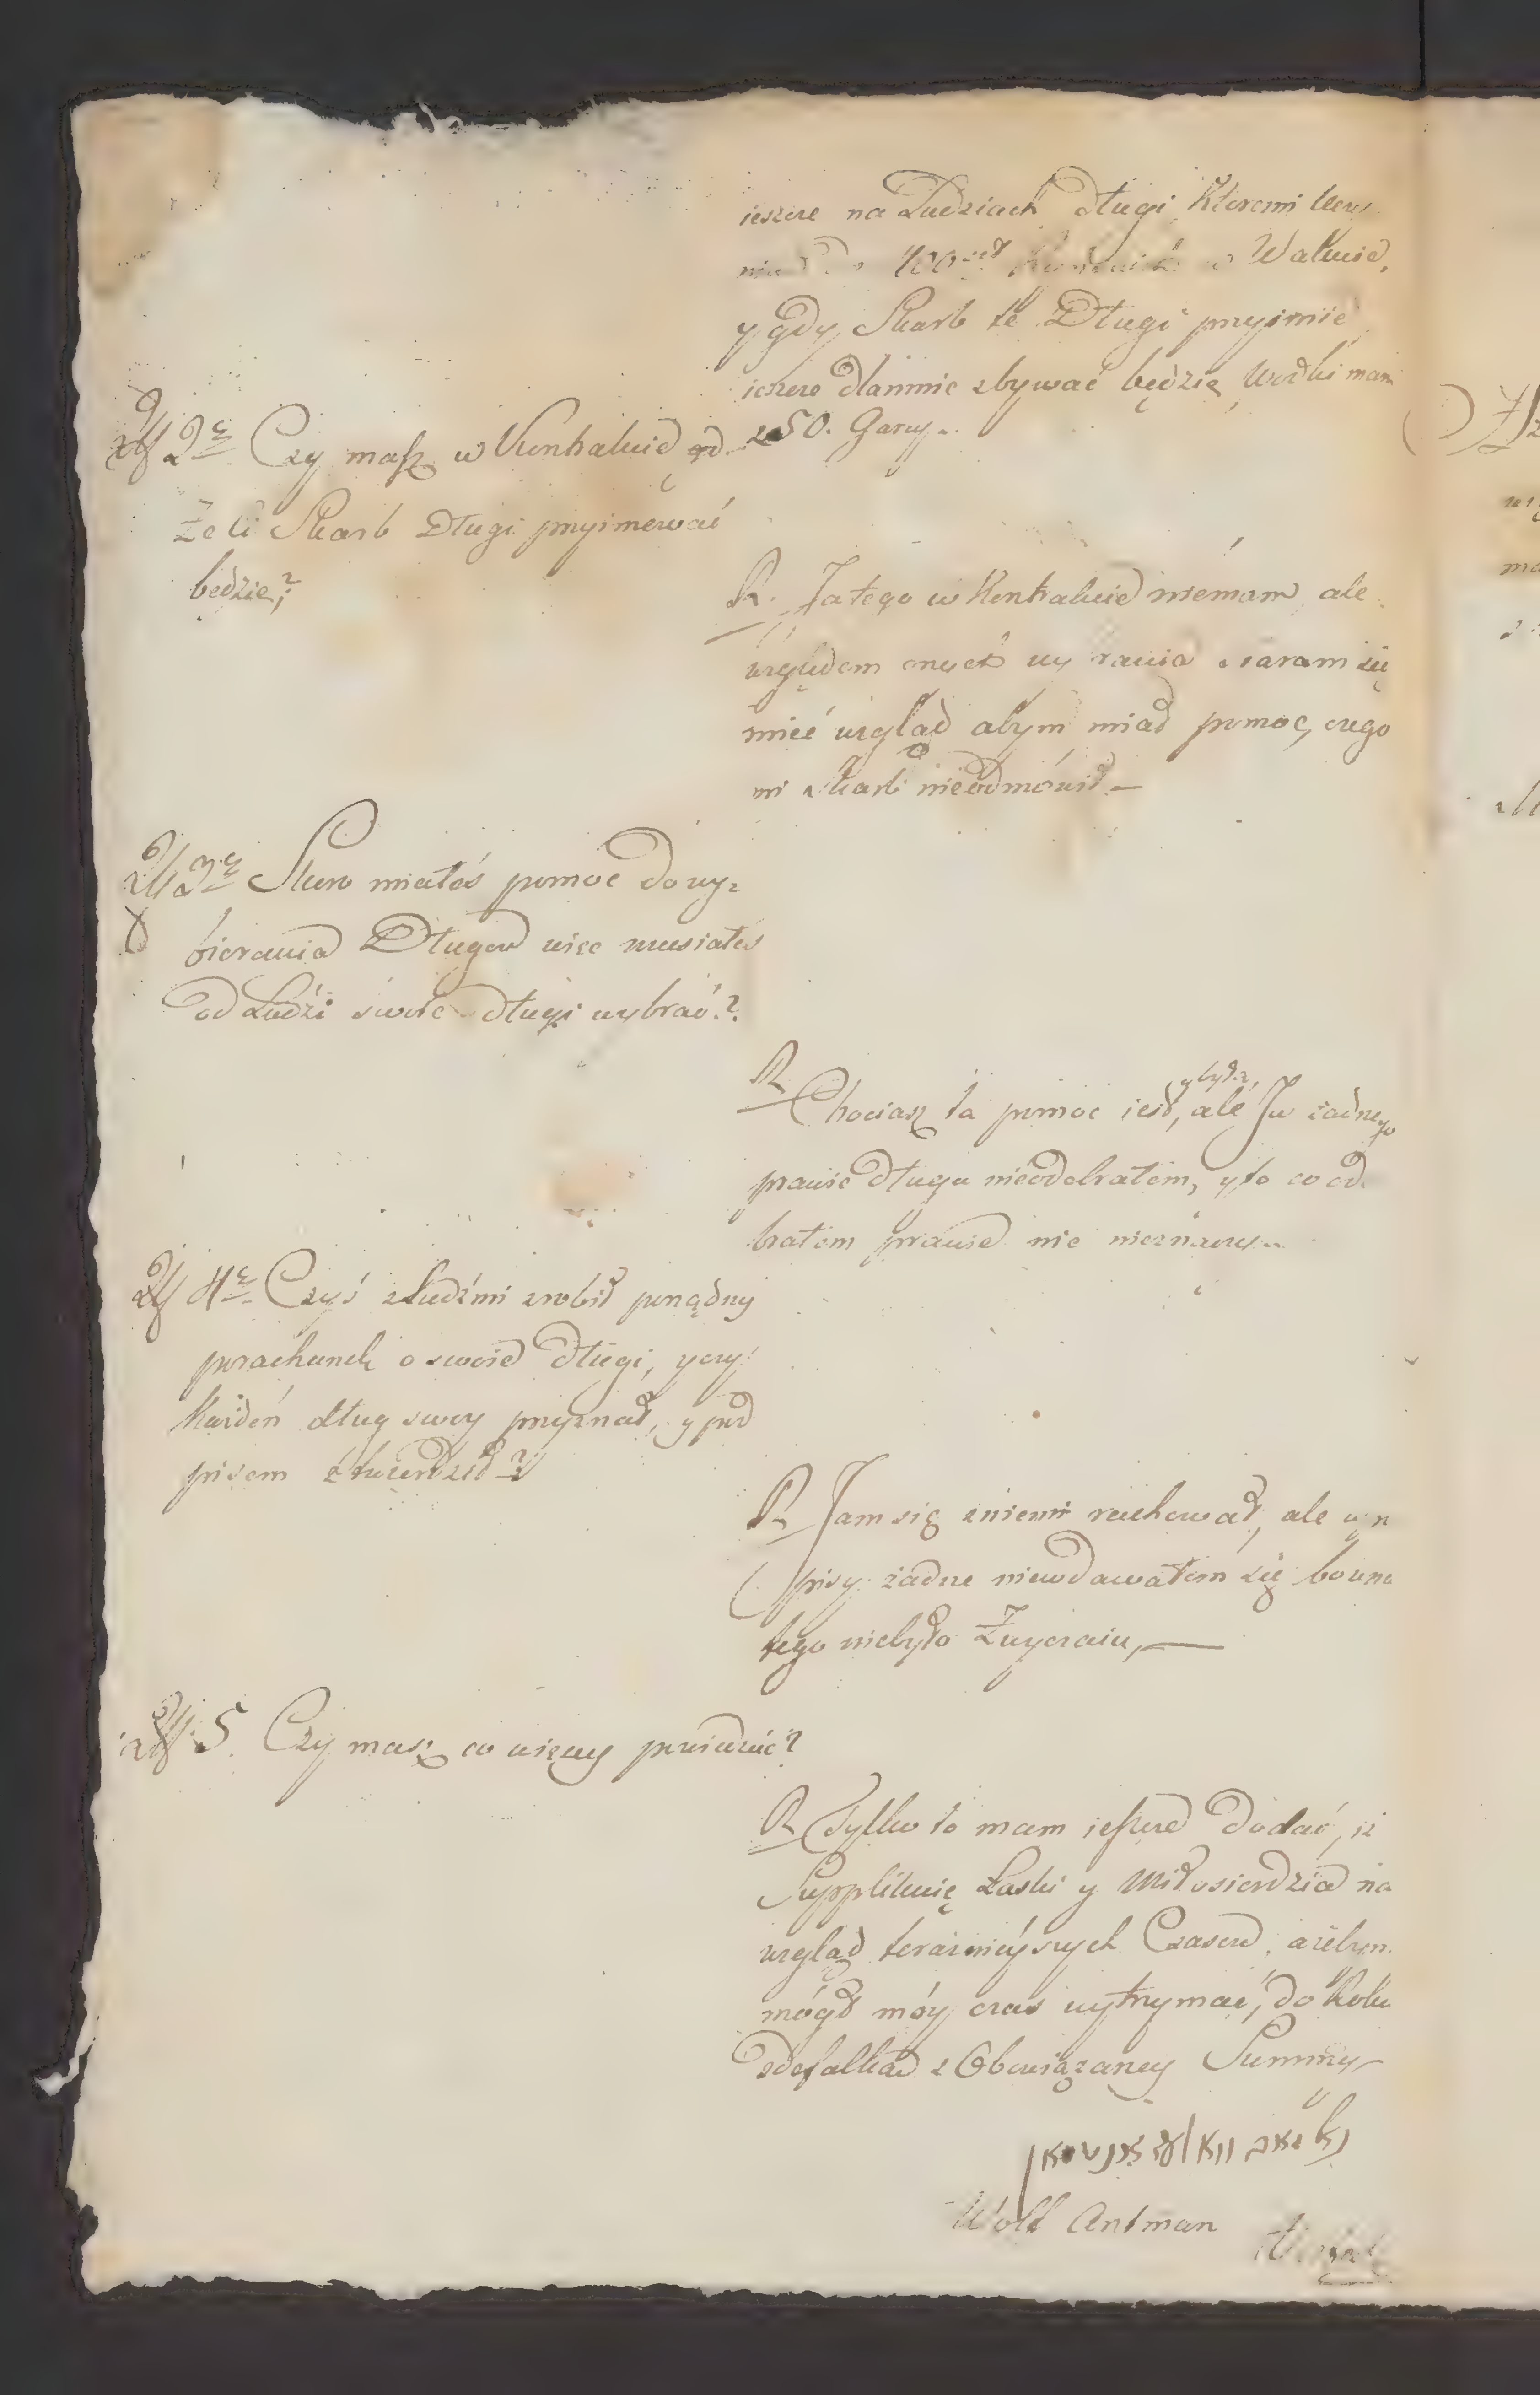 ieszcze na Ludziach długi któremi
100 Wałuie,
y gdy Skarb te Długi przyimie
ieszcze dlamnie zbywać będzie, Wodki mam
z 50. Garcy.
2e Czy masz w Kontrakcie
Żeli Skarb Długi przyimować
będzie?
R. Ja tego w Kontrakcie niemam, ale
względem onych staram się
mieć wzgląd abym miał pomoc, czego
mi skarb nieodmówił —
3e Skoro miałeś pomoc do wy=
bierania Długow wiec musiałeś
od Ludzi swoie długi wybrać?
R
Chociasz ta pomoc iest, y była, ale Ja żadnego
prawie długu nieodebrałem, y to co od
brałem prawie nic nieznaczy
4e Czyś z Ludźmi zrobił porządny
porachunek o swoie długi, y czy
Każden dług swoy przyznał, y pod
pisem stwierdził?
R Jam się zniemi rachował, ale w
pisy żadne niewdawałem się bo
tego niebyło Zwyczaiu, —
5. Czy masz co więcy powiedzieć?
R Tylko to mam ieszcze dodać, iż
Supplikuię Łaski y Miłosierdzia na
wzgląd teraznieyszych Czasow, ażebym
mógł móy czas wytrzymać, do Roku
zdefalkać z Obowiązaney Summy
Wolf Antman